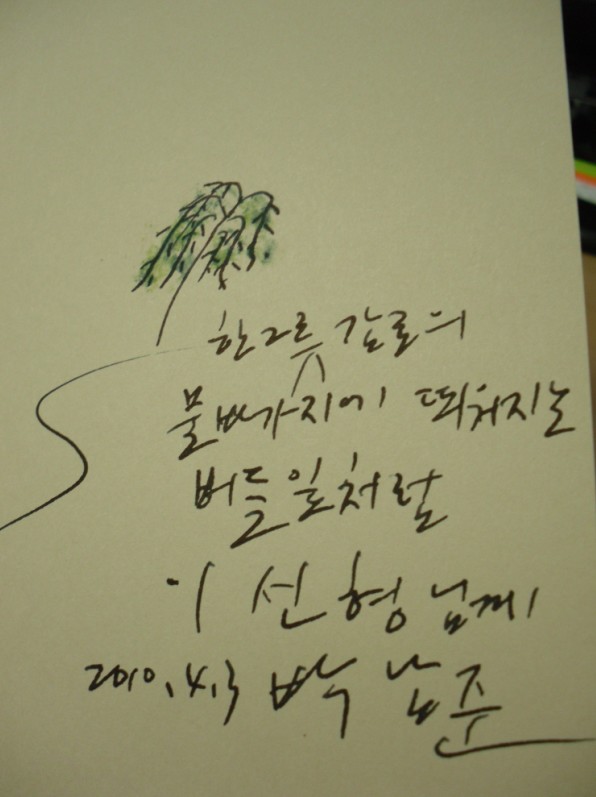 한그릇 감로의
물바가지에 띄워지는
버들잎처럼
이 선형 님께
2010. 4. 3 박남준